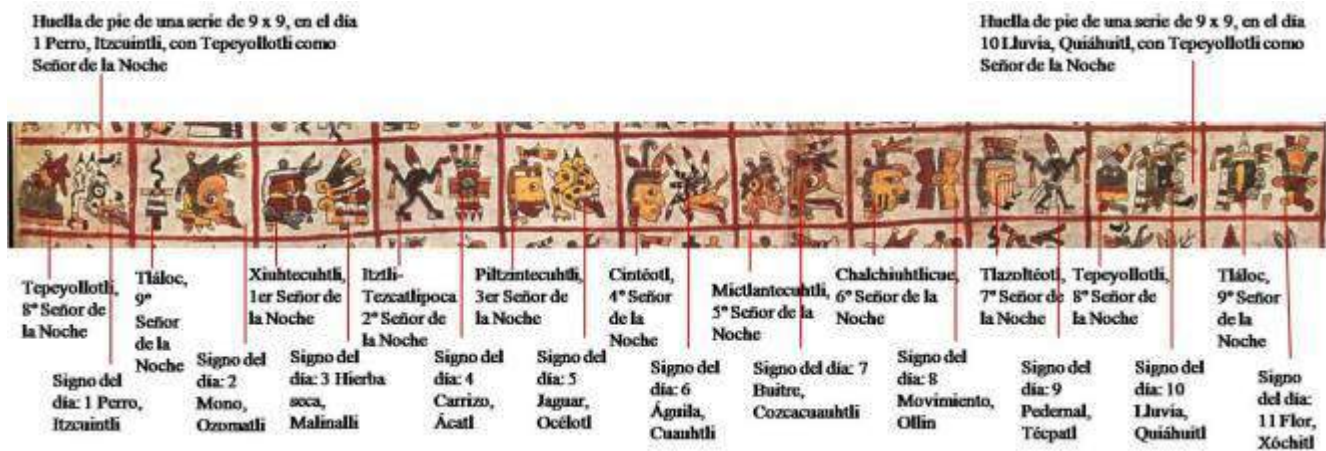 Huella de pie de una serie de 9 x 9, en el día
1 Perro, Itzcuintli, con Tepeyollotli como
Señor de la Noche
Huella de pie de una serie de 9 x 9, en el día
10 Lluvia, Quiáhuitl, con Tepeyollotli como
Señor de la Noche
Tepeyollotli,
8º Señor de
la Noche
Tláloc,
9º
Señor
de la
Noche
Xiuhtecuhtli,
1er Señor de
la Noche
Itztli-
Tezcatlipoca
2º Señor de
la Noche
Piltzintecuhtli,
3er Señor de
la Noche
Cintéotl,
4º Señor
de la
Noche
Mictlantecuhtli,
5º Señor de la
Noche
Chalchiuhtlicue,
6º Señor de la
Noche
Tlazoltéotl,
7º Señor de
la Noche
Tepeyollotli,
8º Señor de
la Noche
Tláloc,
9º Señor
de la
Noche
Signo del
día: 1 Perro,
Itzcuintli
Signo del
día: 2
Mono,
Ozomatli
Signo del
día: 3 Hierba
seca,
Malinalli
Signo del
día: 4
Carrizo,
Ácatl
Signo del
día: 5
Jaguar,
Océlotl
Signo del
día: 6
Águila,
Cuauhtli
Signo del día: 7
Buitre,
Cozcacuauhtli
Signo del
día: 8
Movimiento,
Ollin
Signo del
día: 9
Pedernal,
Técpatl
Signo del
día: 10
Lluvia,
Quiáhuitl
Signo
del día:
11 Flor,
Xóchitl